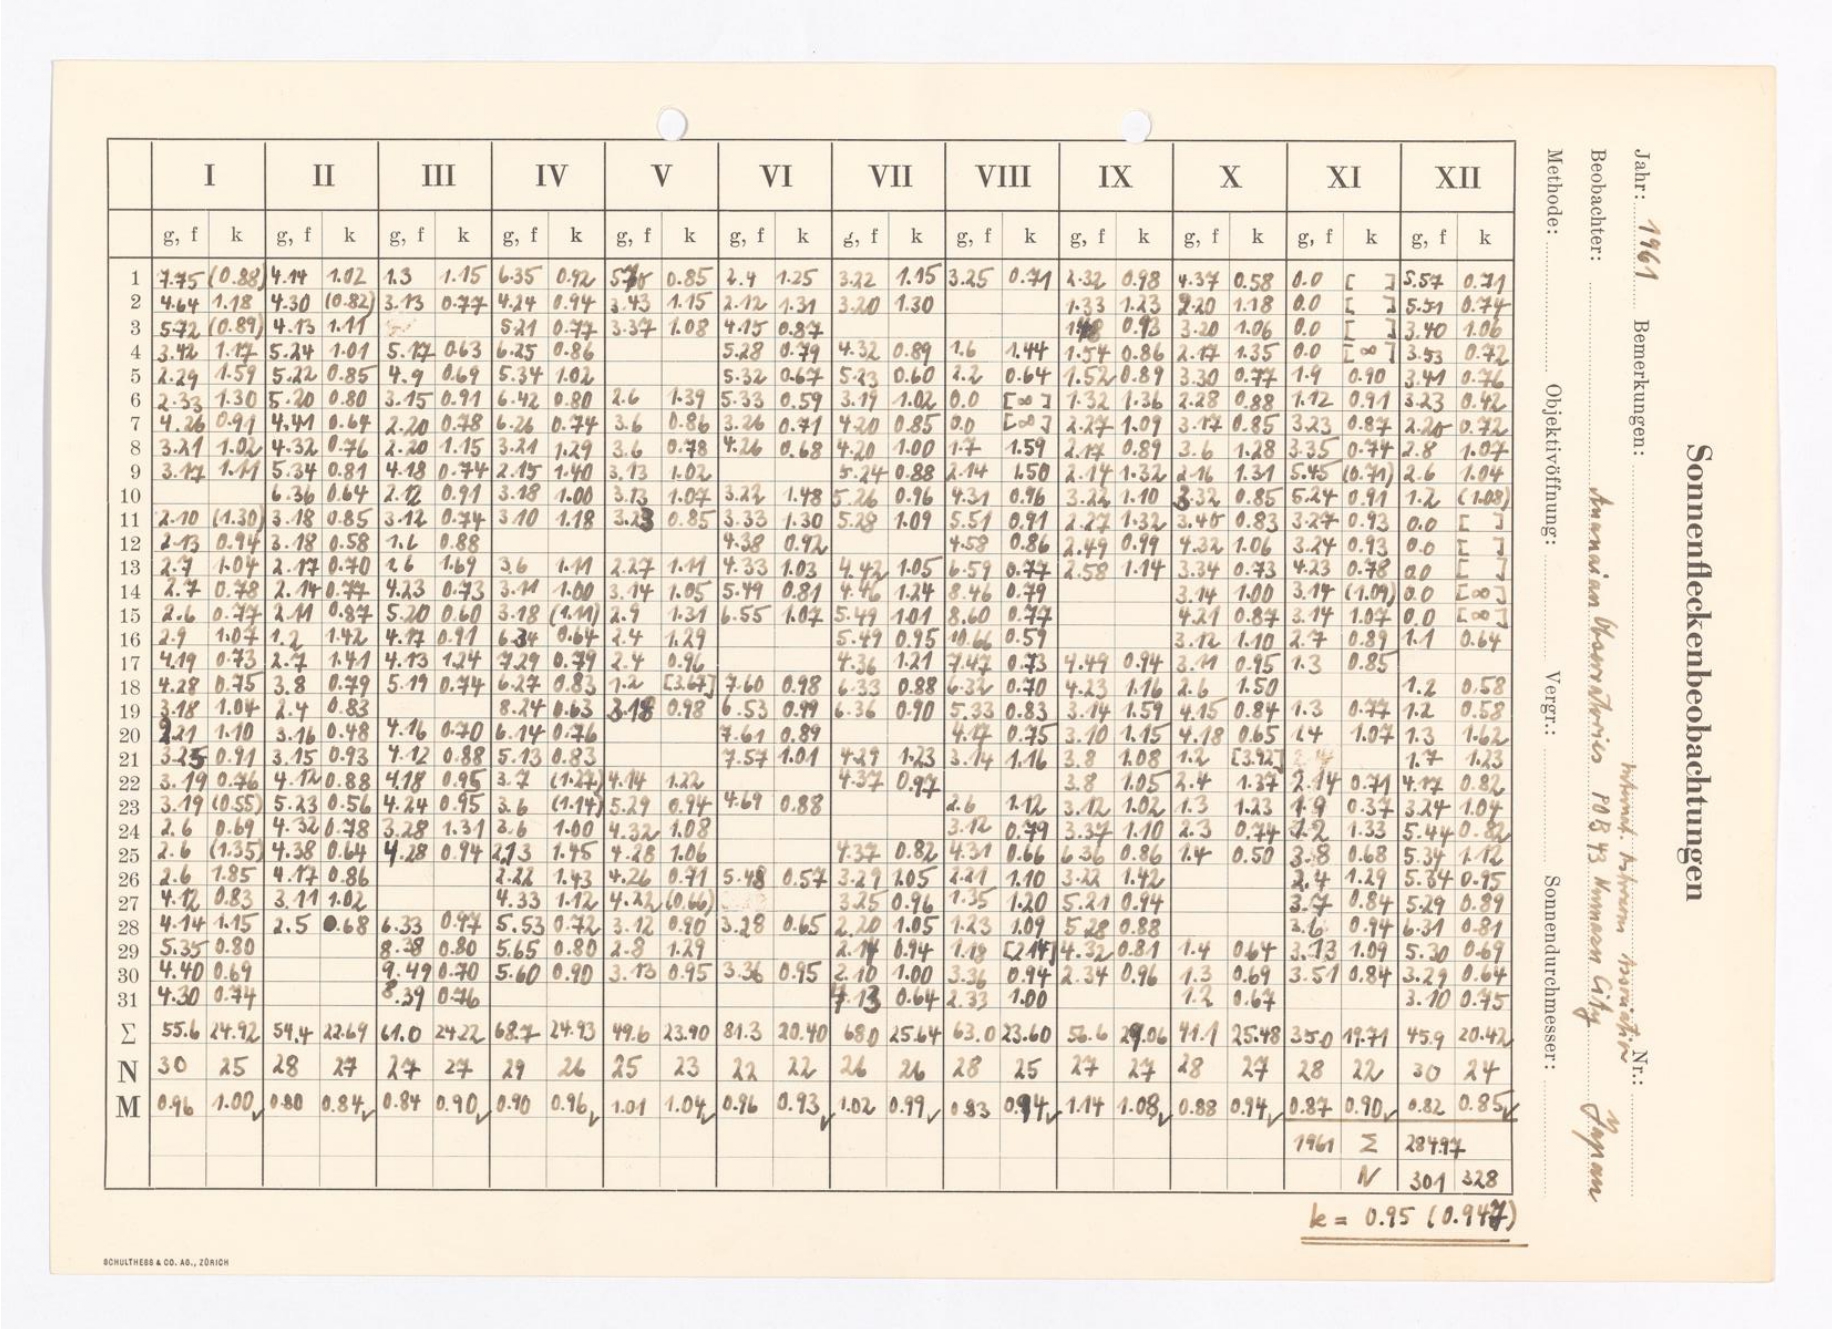 Sonnenfleckenbeobachtungen
Jahr: 1961 Bemerkungen: Nr.:
Beobachter: Observatories POB 43 City Japan
Methode: Objektivöffnung: Vergr.: Sonnendurchmesser:
I II III IV V VI VII VIII IX X XI XII
g, f k g, f k g, f k g, f k g, f k g, f k g, f k g, f k g, f k g, f k g, f k g, f k
1 7.75 (0.88) 4.14 1.02 1.3 1.15 6.35 0.92 0.85 2.4 1.25 3.22 1.15 3.25 0.71 2.32 0.98 4.37 0.58 0.0 [ ] 5.57 0.71
2 4.64 1.18 4.30 (0.82) 3.13 0.77 4.24 0.94 3.43 1.15 2.12 1.31 3.20 1.30 1.33 1.23 2.20 1.18 0.0 [ ] 5.51 0.74
3 5.72 (0.89) 4.13 1.11 5.21 0.77 3.37 1.08 4.15 0.87 0.93 3.20 1.06 0.0 [ ] 3.40 1.06
4 3.42 1.17 5.24 1.01 5.17 0.63 6.25 0.86 5.28 0.79 4.32 0.89 1.6 1.44 1.54 0.86 2.17 1.35 0.0 [∞] 3.53 0.72
5 2.29 1.59 5.22 0.85 4.9 0.69 5.34 1.02 5.32 0.67 5.23 0.60 2.2 0.64 1.52 0.89 3.30 0.77 1.9 0.90 3.41 0.76
6 2.33 1.30 5.20 0.80 3.15 0.91 6.42 0.80 2.6 1.39 5.33 0.59 3.19 1.02 0.0 [∞] 1.32 1.36 2.28 0.88 1.12 0.91 3.23 0.42
7 4.26 0.91 4.41 0.64 2.20 0.78 6.26 0.74 3.6 0.86 3.26 0.71 4.20 0.85 0.0 [∞] 2.27 1.09 3.17 0.85 3.23 0.87 2.20 0.72
8 3.21 1.02 4.32 0.76 2.20 1.15 3.21 1.29 3.6 0.78 4.26 0.68 4.20 1.00 1.7 1.59 2.17 0.89 3.6 1.28 3.35 0.74 2.8 1.07
9 3.17 1.11 5.34 0.81 4.18 0.74 2.15 1.40 3.13 1.02 5.24 0.88 2.14 1.50 2.14 1.32 2.16 1.31 5.45 (0.71) 2.6 1.04
10 6.36 0.64 2.12 0.91 3.18 1.00 3.13 1.07 3.22 1.48 5.26 0.96 4.31 0.96 3.22 1.10 3.32 0.85 5.24 0.91 1.2 (1.08)
11 2.10 (1.30) 3.18 0.85 3.12 0.74 3.10 1.18 3.23 0.85 3.33 1.30 5.28 1.09 5.51 0.91 2.27 1.32 3.40 0.83 3.27 0.93 0.0 [ ]
12 2.13 0.94 3.18 0.58 1.6 0.88 4.38 0.92 4.58 0.86 2.49 0.99 4.32 1.06 3.24 0.93 0.0 [ ]
13 2.7 1.04 2.17 0.70 1.6 1.69 3.6 1.11 2.27 1.11 4.33 1.03 4.42 1.05 6.59 0.77 2.58 1.14 3.34 0.73 4.23 0.78 0.0 [ ]
14 2.7 0.78 2.14 0.77 4.23 0.73 3.11 1.00 3.14 1.05 5.49 0.81 4.46 1.24 8.46 0.79 3.14 1.00 3.14 (1.09) 0.0 [∞]
15 2.6 0.77 2.11 0.87 5.20 0.60 3.18 (1.11) 2.9 1.31 6.55 1.07 5.49 1.01 8.60 0.77 4.21 0.87 3.14 1.07 0.0 [∞]
16 2.9 1.07 1.2 1.42 4.17 0.91 6.34 0.64 2.4 1.29 5.49 0.95 10.66 0.59 3.12 1.10 2.7 0.89 1.1 0.64
17 4.19 0.73 2.7 1.41 4.13 1.24 7.29 0.79 2.4 0.96 4.36 1.21 7.47 0.73 4.49 0.94 3.11 0.95 1.3 0.85
18 4.28 0.75 3.8 0.79 5.19 0.74 6.27 0.83 1.2 [3.67] 7.60 0.98 6.33 0.88 6.32 0.70 4.23 1.16 2.6 1.50 1.2 0.58
19 3.18 1.04 2.4 0.83 8.24 0.63 3.18 0.98 6.53 0.99 6.36 0.90 5.33 0.83 3.14 1.59 4.15 0.84 1.3 0.77 1.2 0.58
20 2.21 1.10 3.16 0.48 4.16 0.70 6.14 0.76 7.61 0.89 4.17 0.75 3.10 1.15 4.18 0.65 1.4 1.07 1.3 1.62
21 3.25 0.91 3.15 0.93 4.12 0.88 5.13 0.83 7.57 1.01 4.29 1.23 3.14 1.16 3.8 1.08 1.2 [3.92] 1.7 1.23
22 3.19 0.76 4.12 0.88 4.18 0.95 3.7 (1.27) 4.14 1.22 4.37 0.97 3.8 1.05 2.4 1.37 2.14 0.71 4.17 0.82
23 3.19 (0.55) 5.23 0.56 4.24 0.95 3.6 (1.14) 5.29 0.94 4.69 0.88 2.6 1.12 3.12 1.02 1.3 1.23 1.9 0.37 3.24 1.04
24 2.6 0.69 4.32 0.78 3.28 1.31 3.6 1.00 4.32 1.08 3.12 0.79 3.37 1.10 2.3 0.74 1.33 5.44 0.82
25 2.6 (1.35) 4.38 0.64 4.28 0.94 2.13 1.45 4.28 1.06 4.37 0.82 4.31 0.66 6.36 0.86 1.4 0.50 3.8 0.68 5.34 1.12
26 2.6 1.85 4.17 0.86 2.22 1.43 4.26 0.71 5.48 0.57 3.29 1.05 2.21 1.10 3.22 1.42 2.4 1.29 5.34 0.95
27 4.12 0.83 3.11 1.02 4.33 1.12 4.22 (0.66) 3.25 0.96 1.35 1.20 5.21 0.94 3.7 0.84 5.29 0.89
28 4.14 1.15 2.5 0.68 6.33 0.97 5.53 0.72 3.12 0.90 3.28 0.65 2.20 1.05 1.23 1.09 5.28 0.88 3.6 0.94 6.31 0.81
29 5.35 0.80 8.38 0.80 5.65 0.80 2.8 1.29 2.14 0.94 1.18 [2.14] 4.32 0.81 1.4 0.64 3.13 1.09 5.30 0.69
30 4.40 0.69 9.49 0.70 5.60 0.90 3.13 0.95 3.36 0.95 2.10 1.00 3.36 0.94 2.34 0.96 1.3 0.69 3.51 0.84 3.29 0.64
31 4.30 0.74 8.39 0.76 0.64 2.33 1.00 1.2 0.67 3.10 0.75
Σ 55.6 24.92 54.4 22.69 61.0 24.22 68.7 24.93 49.6 23.90 81.3 20.40 68.0 25.64 63.0 23.60 56.6 29.06 41.1 25.48 35.0 19.71 45.9 20.42
N 30 25 28 27 27 27 29 26 25 23 22 22 26 26 28 25 27 27 28 27 28 22 30 24
M 0.96 1.00✓ 0.80 0.84✓ 0.84 0.90✓ 0.90 0.96✓ 1.01 1.04✓ 0.96 0.93✓ 1.02 0.99✓ 0.83 0.94✓ 1.14 1.08✓ 0.88 0.94✓ 0.87 0.90✓ 0.82 0.85✓
1961 Σ 284.97
N 301 328
k = 0.95 (0.947)
SCHULTHESS & CO. AG., ZÜRICH